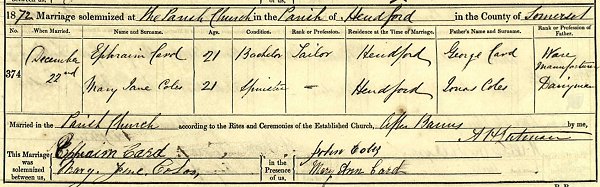 1872. Marriage solemnized at the Parish Church in the Parish of Hendford in the County of Somerset
No. When Married. Name and Surname. Age. Condition. Rank or Profession. Residence at the Time of Marriage. Father's Name and Surname. Rank or Profession of Father.
374 December 22nd Ephraim Card 21 Bachelor Tailor Hendford George Card Ware Manufacturer
Mary Jane Coles 21 Spinster — Hendford Coles Dairyman
Married in the Parish Church according to the Rites and Ceremonies of the Established Church, after Banns by me,
This Marriage was solemnized between us, Ephraim Card Mary Jane Coles in the Presence of us, John Coles Mary Ann Card